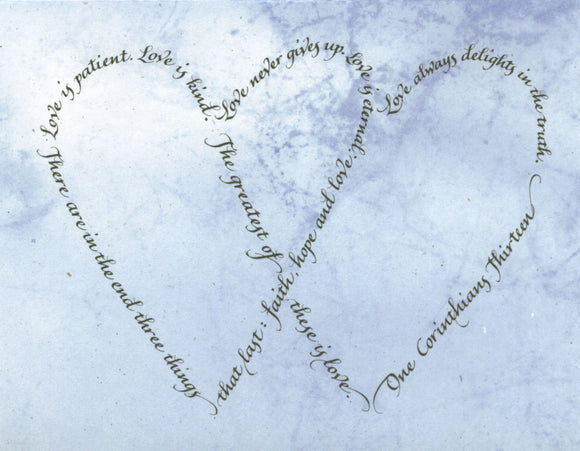 Love is patient. Love is kind.
Love never gives up. Love is eternal.
Love always delights in the truth.
There are in the end three things
that last: faith, hope and love.
The greatest of these is love.
One Corinthians Thirteen